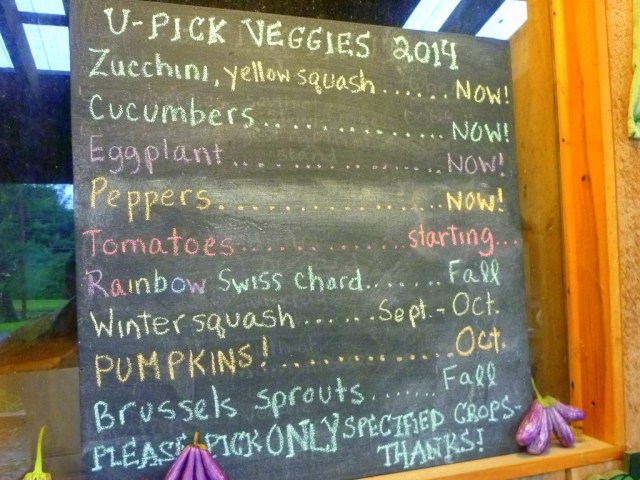 U-PICK VEGGIES 2014
Zucchini, yellow squash...... NOW!
Cucumbers.................. NOW!
Eggplant.................... NOW!
Peppers................... NOW!
Tomatoes............. starting...
Rainbow Swiss Chard....... Fall
Winter squash ...... Sept. - Oct.
PUMPKINS! .............. Oct.
Brussels sprouts ....... Fall
PLEASE PICK ONLY SPECIFIED CROPS-
THANKS!